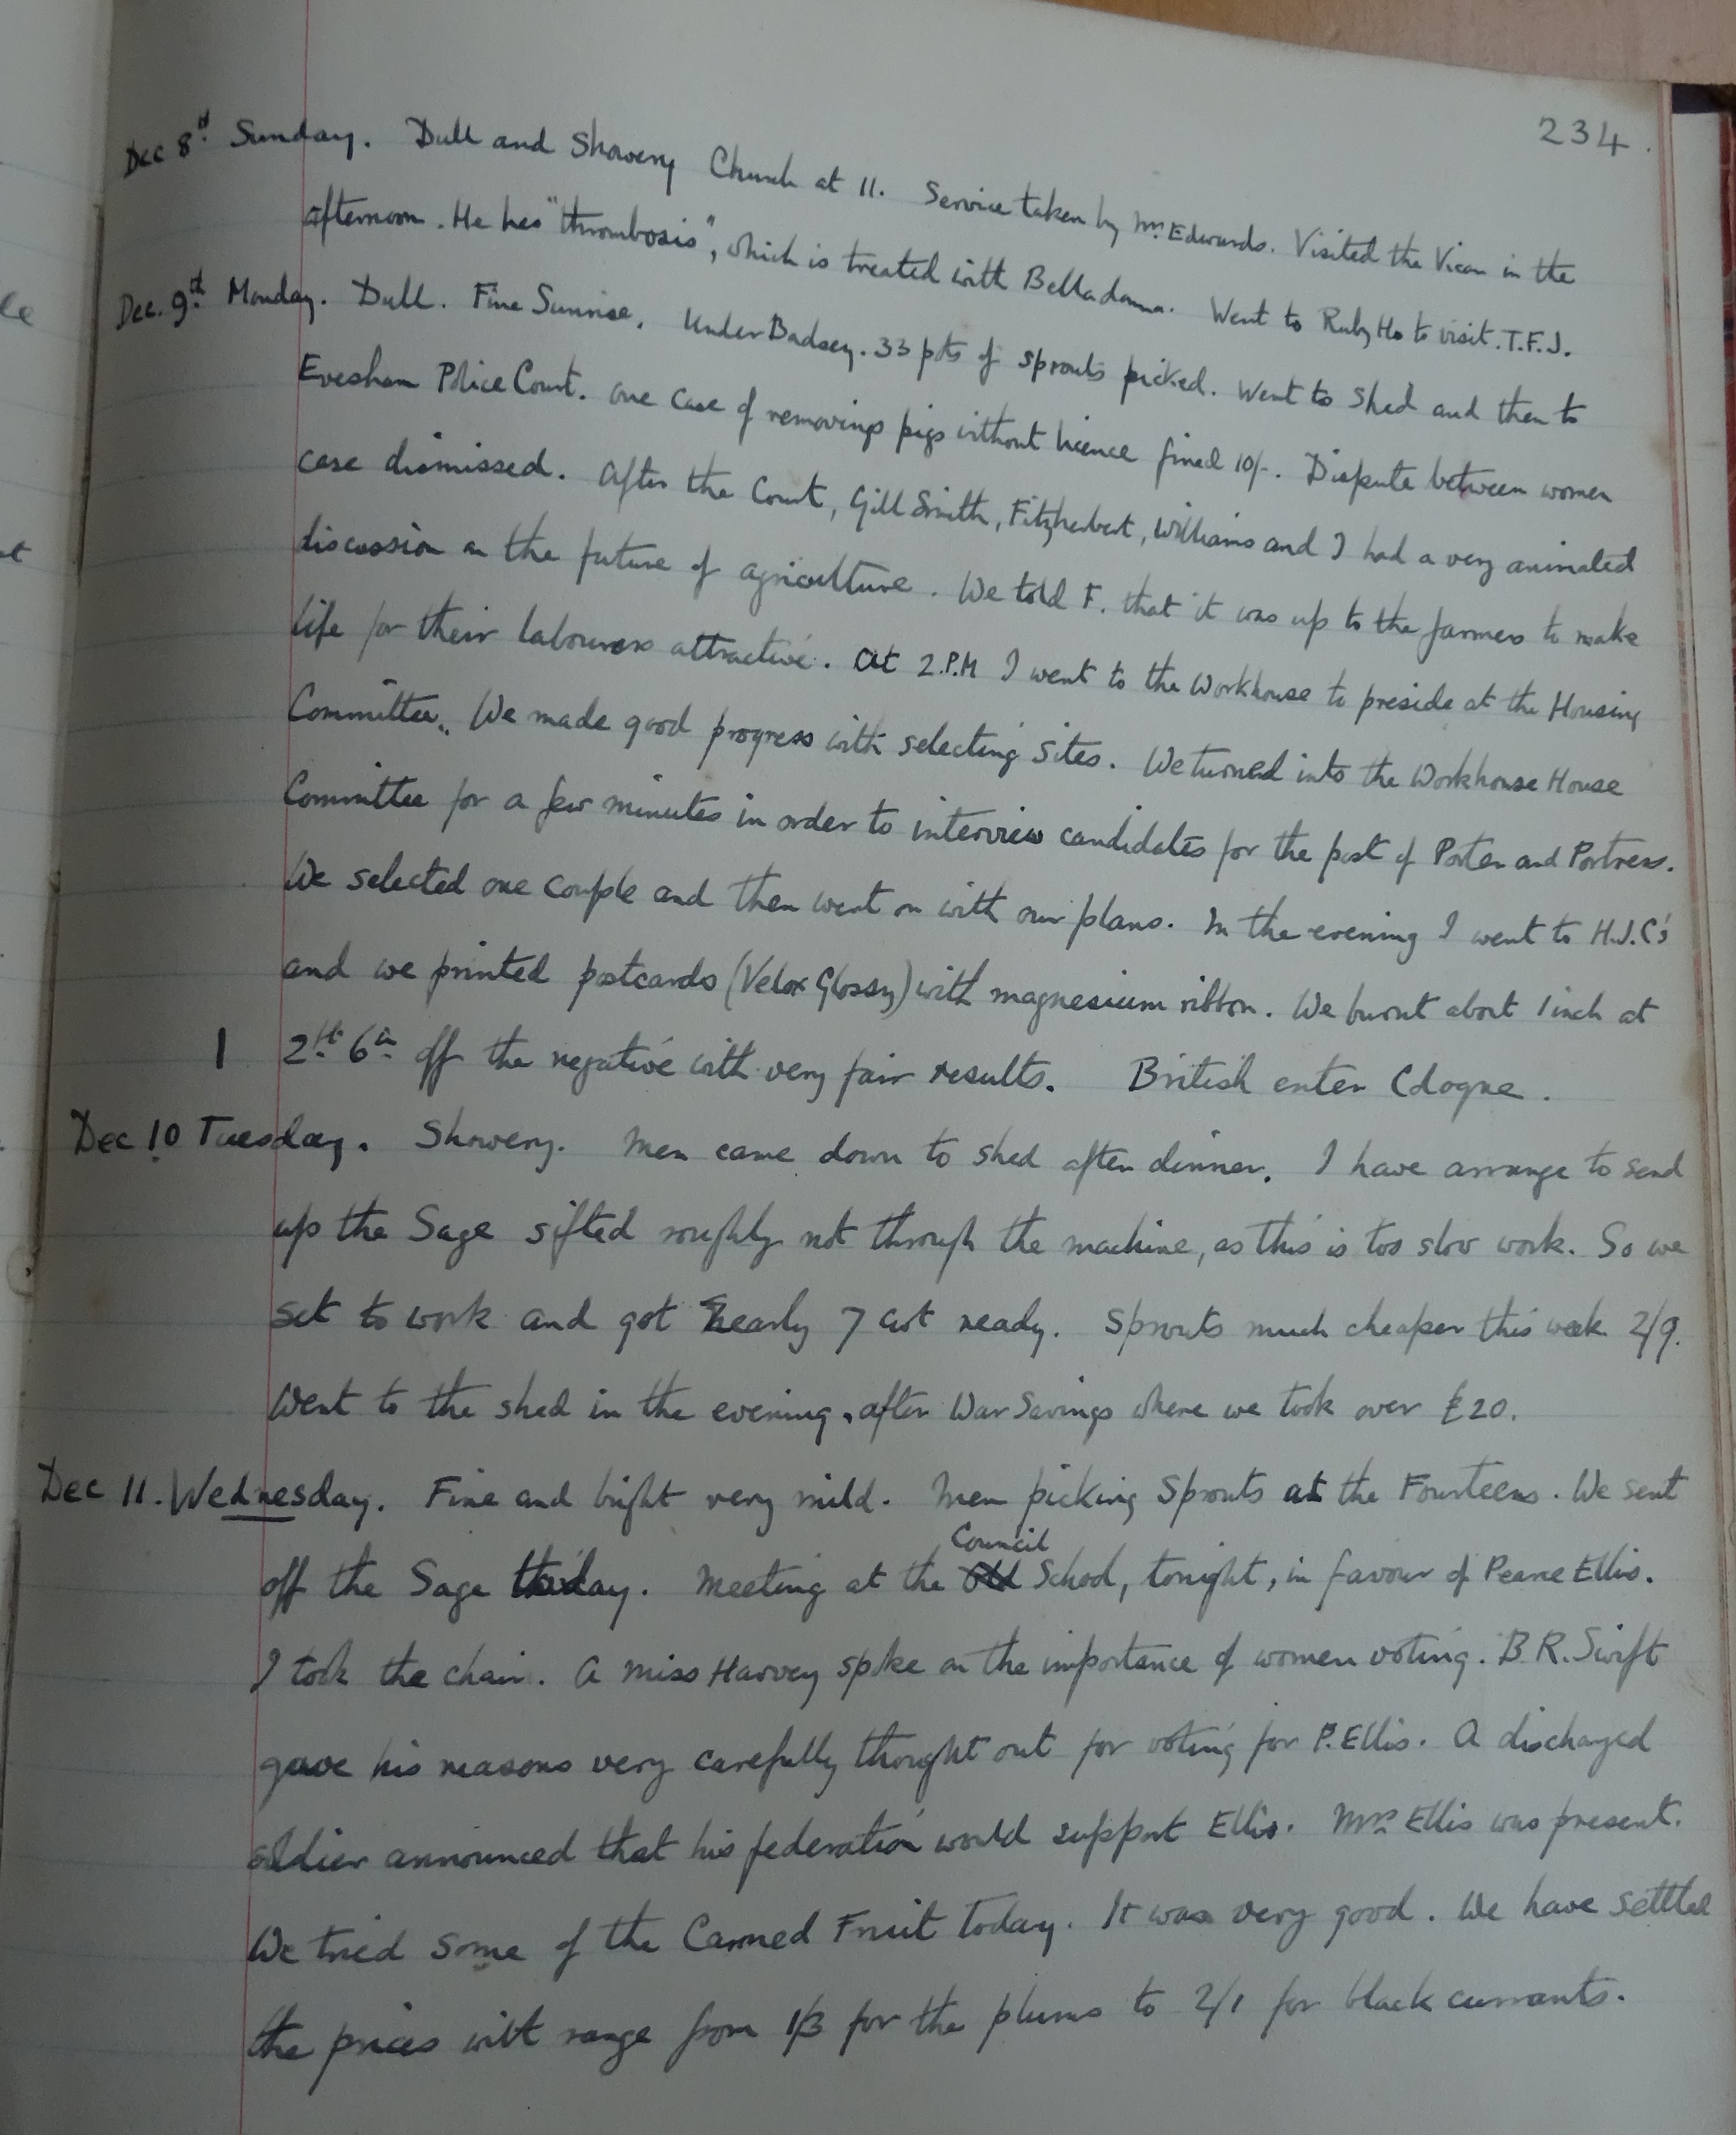 234.
Dec 8th Sunday. Dull and Showery Church at 11. Service taken by Mr. Edwards. Visited the Vicar in the
afternoon. He has "thrombosis", which is treated with Belladonna. Went to Ruby Ho to visit. T.F.J.
Dec. 9th Monday. Dull. Fine Sunrise. Under Badsey. 33 pots of sprouts picked. Went to Shed and then to
Evesham Police Court. One case of removing pigs without licence fined 10/-. Dispute between women
case dismissed. After the Court, Gill Smith, Fitzherbert, Williams and I had a very animated
discussion on the future of agriculture. We told F. that it was up to the farmers to make
life for their labourers attractive. At 2.P.M I went to the Workhouse to preside at the Housing
Committee. We made good progress with selecting sites. We turned into the Workhouse House
Committee for a few minutes in order to interview candidates for the post of Porter and Portress.
We selected one couple and then went on with our plans. In the evening I went to H.J.C's
and we printed postcards (Velox Glossy) with magnesium ribbon. We burnt about 1 inch at
1 2ft 6in off the negative with very fair results. British enter Cologne.
Dec 10 Tuesday. Showery. Men came down to shed after dinner. I have arrange to send
up the Sage sifted roughly not through the machine, as this is too slow work. So we
set to work and got nearly 7 cwt ready. Sprouts much cheaper this week 2/9.
Went to the shed in the evening, after War Savings where we took over £20.
Dec 11. Wednesday. Fine and bright very mild. Men picking Sprouts at the Fourteens. We sent
Council
off the Sage today. Meeting at the Old School, tonight, in favour of Pearce Ellis.
I took the chair. A Miss Harvey spoke on the importance of women voting. B.R. Swift
gave his reasons very carefully thought out for voting for P. Ellis. A discharged
soldier announced that his federation would support Ellis. Mrs Ellis was present.
We tried some of the Canned Fruit today. It was very good. We have settled
the prices will range from 1/3 for the plums to 2/1 for black currants.